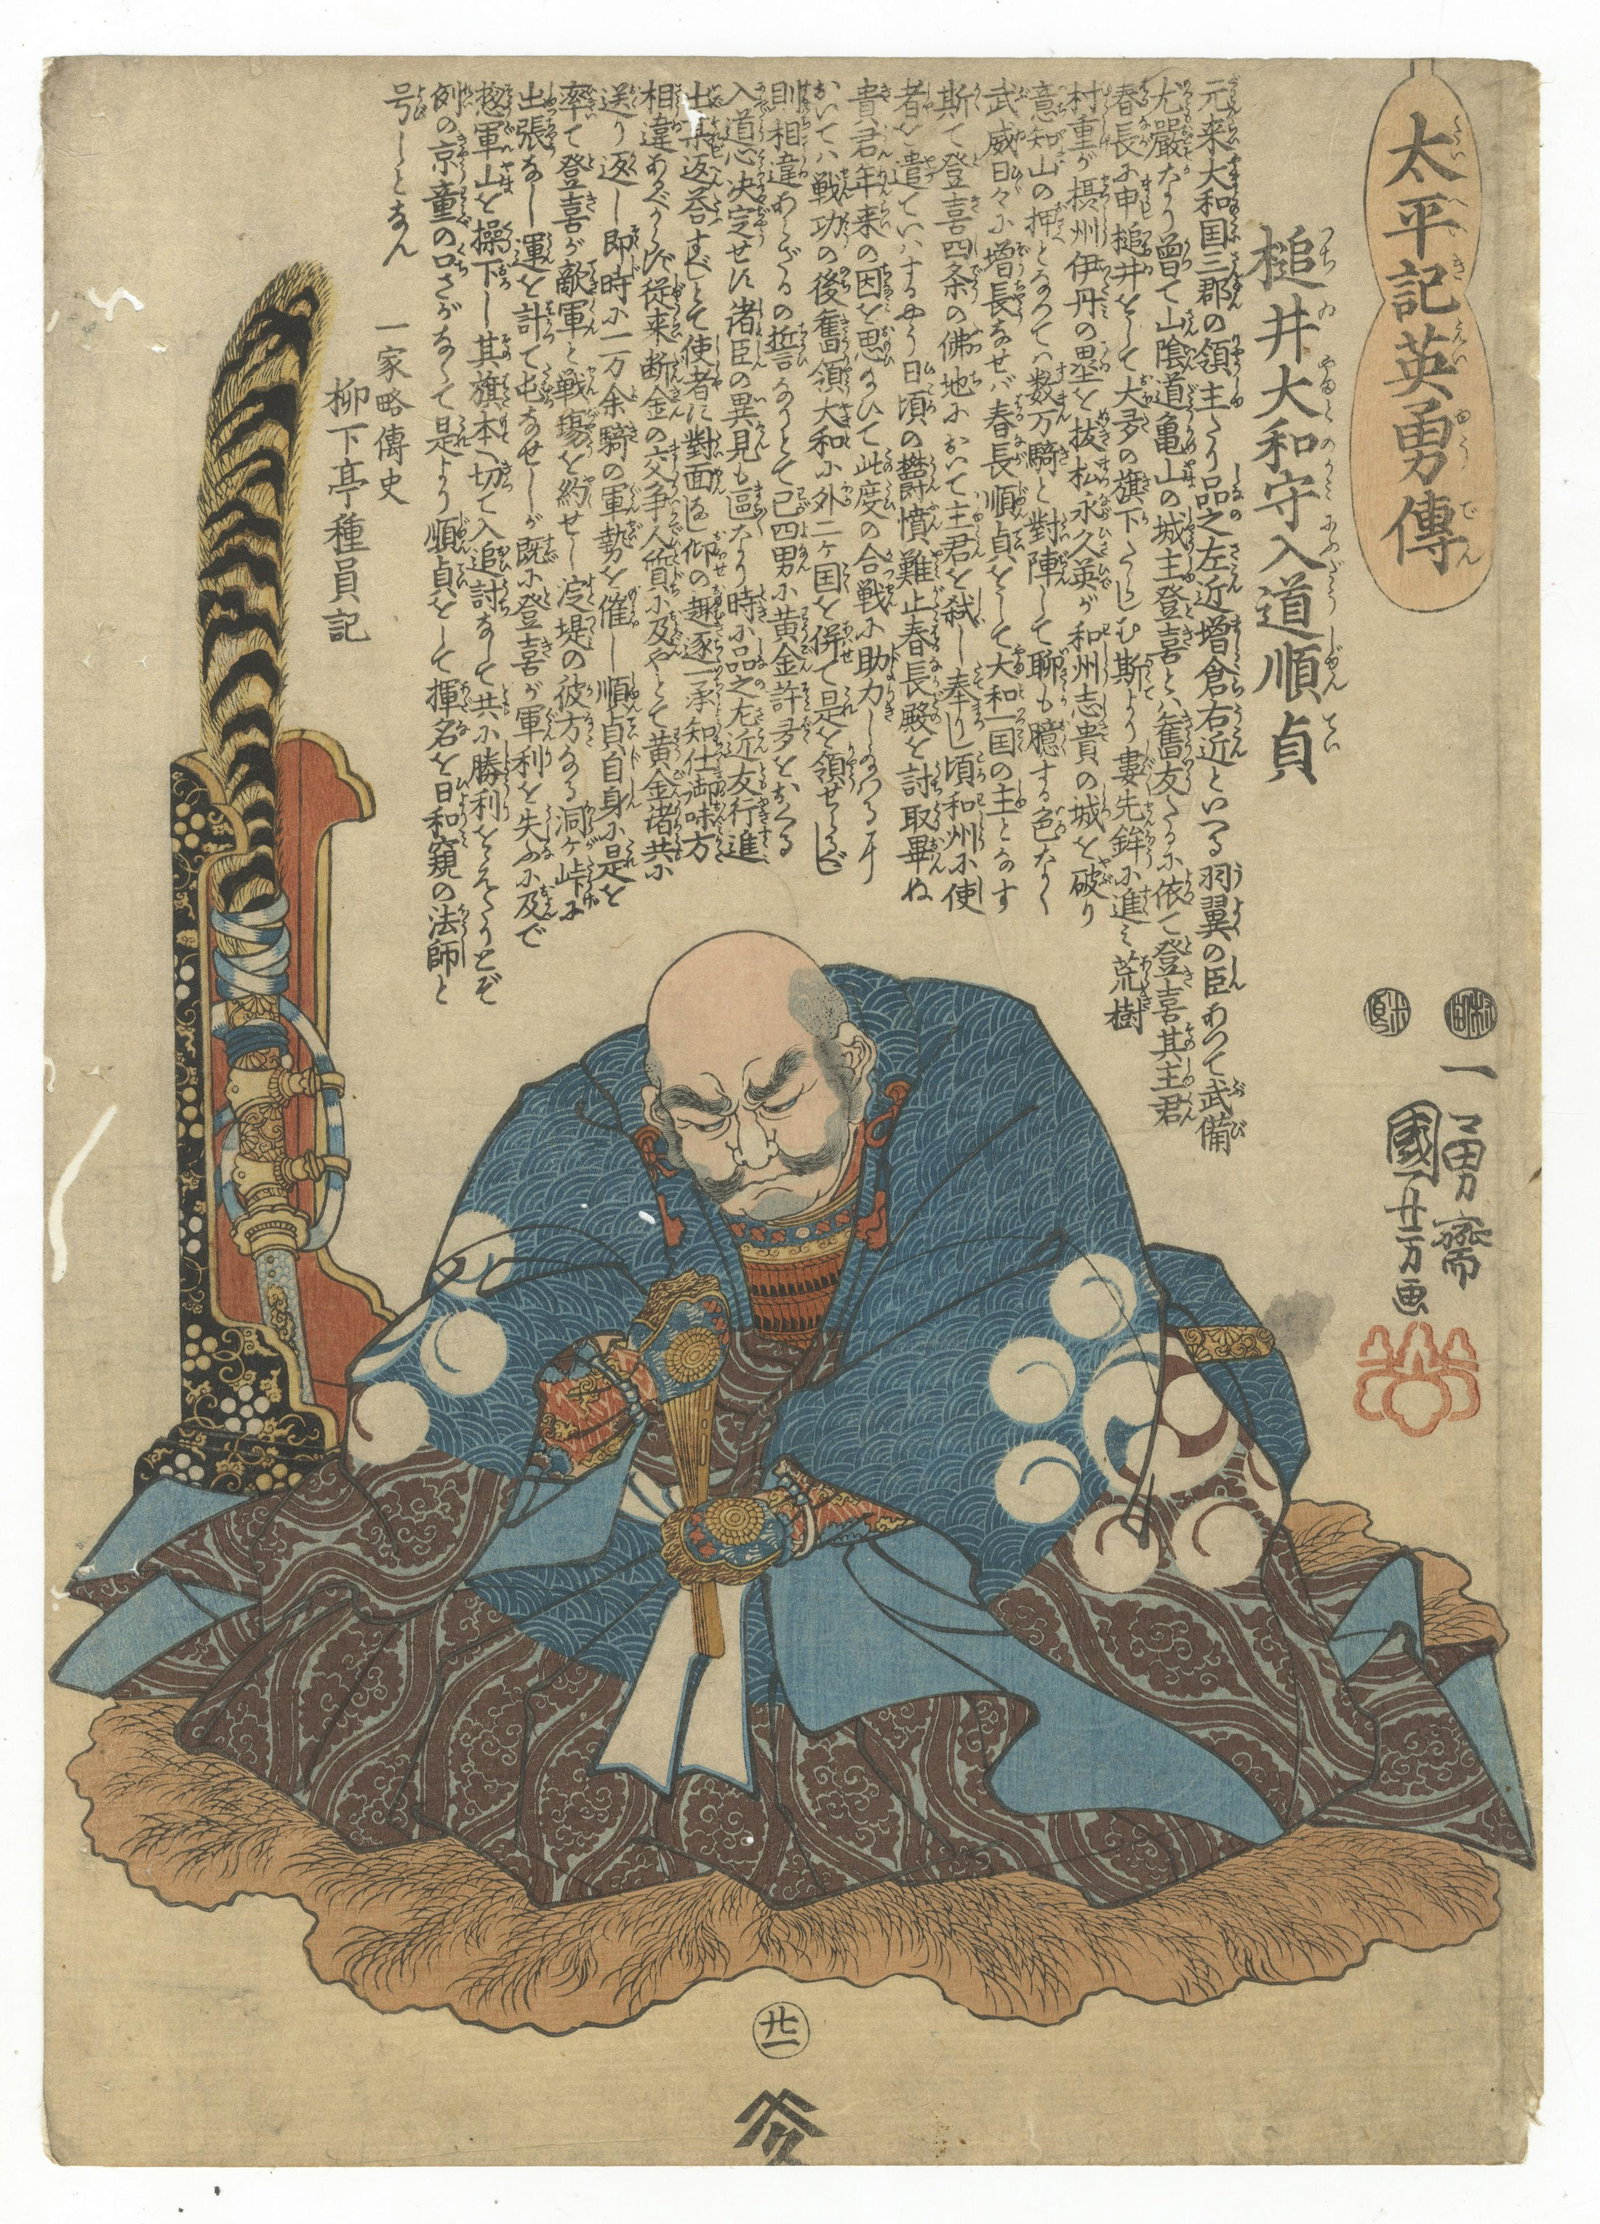 太平記英勇傳
槌井大和守入道順貞
元来大和国三郡の領主たり品之左近増倉右近といへる羽翼の臣あつて武備
尤嚴たり曽て山陰道亀山の城主登喜とハ舊友たるに依て登喜其主君
春長に申槌井をして大多の旗下たらしむ斯より妻先鉾に進ミ荒樹
村重が摂州伊丹の塁を抜松永久英が和州志貴の城を破り
意知山の押となつてハ数万騎と對陣して聊も臆する色なく
武威日々に増長なせバ春長順貞をして大和一国の主となす
斯て登喜四条の佛地において主君を弑し奉りし頃和州に使
者を遣ていハするやう日頃の欝憤難止春長殿を討取畢ぬ
貴君年来の因を思ひて此度の合戦に助力し
おいてハ戦功の後舊領大和に外二ヶ国を併て是を領せらるべし
則相違あらざるの誓なりとて己四男に黄金許多をおくる
入道心决定せに渚臣の異見も區なり時に品之左近友行進
出其返答すべしとて使者に對面し仰の趣逐一承知仕御味方
相違あるべからず従来断金の交争人質に及やとて黄金渚共に
送り返し即時に一万余騎の軍勢を催し順貞自身に是を
率て登喜が敵軍と戦場を約せし淀堤の彼方なる洞ヶ峠に
出張なし運を計て屯なせしが既に登喜が軍利を失ふに及で
惣軍山を操下し其旗本へ切て入追討なして共に勝利をえたりとぞ
例の京童の口さがなくて是より順貞をして揮名を日和窺の法師と
号しとなん
一家略傳史
柳下亭種員記
一勇齋
國芳画
廿一